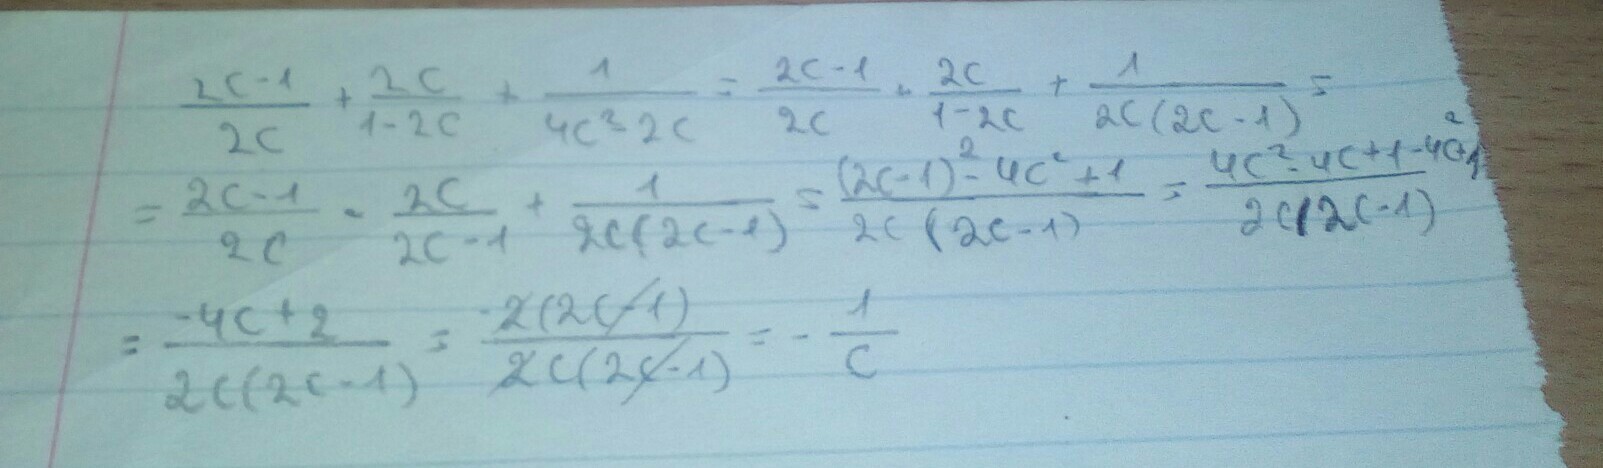 (2c-1)/2c + 2c/(1-2c) + 1/(4c²-2c) = (2c-1)/2c + 2c/(1-2c) + 1/(2c(2c-1)) =
= (2c-1)/2c - 2c/(2c-1) + 1/(2c(2c-1)) = ((2c-1)²-4c²+1)/(2c(2c-1)) = (4c²-4c+1-4c²+1)/(2c(2c-1))
= (-4c+2)/(2c(2c-1)) = -2(2c-1)/(2c(2c-1)) = -1/c